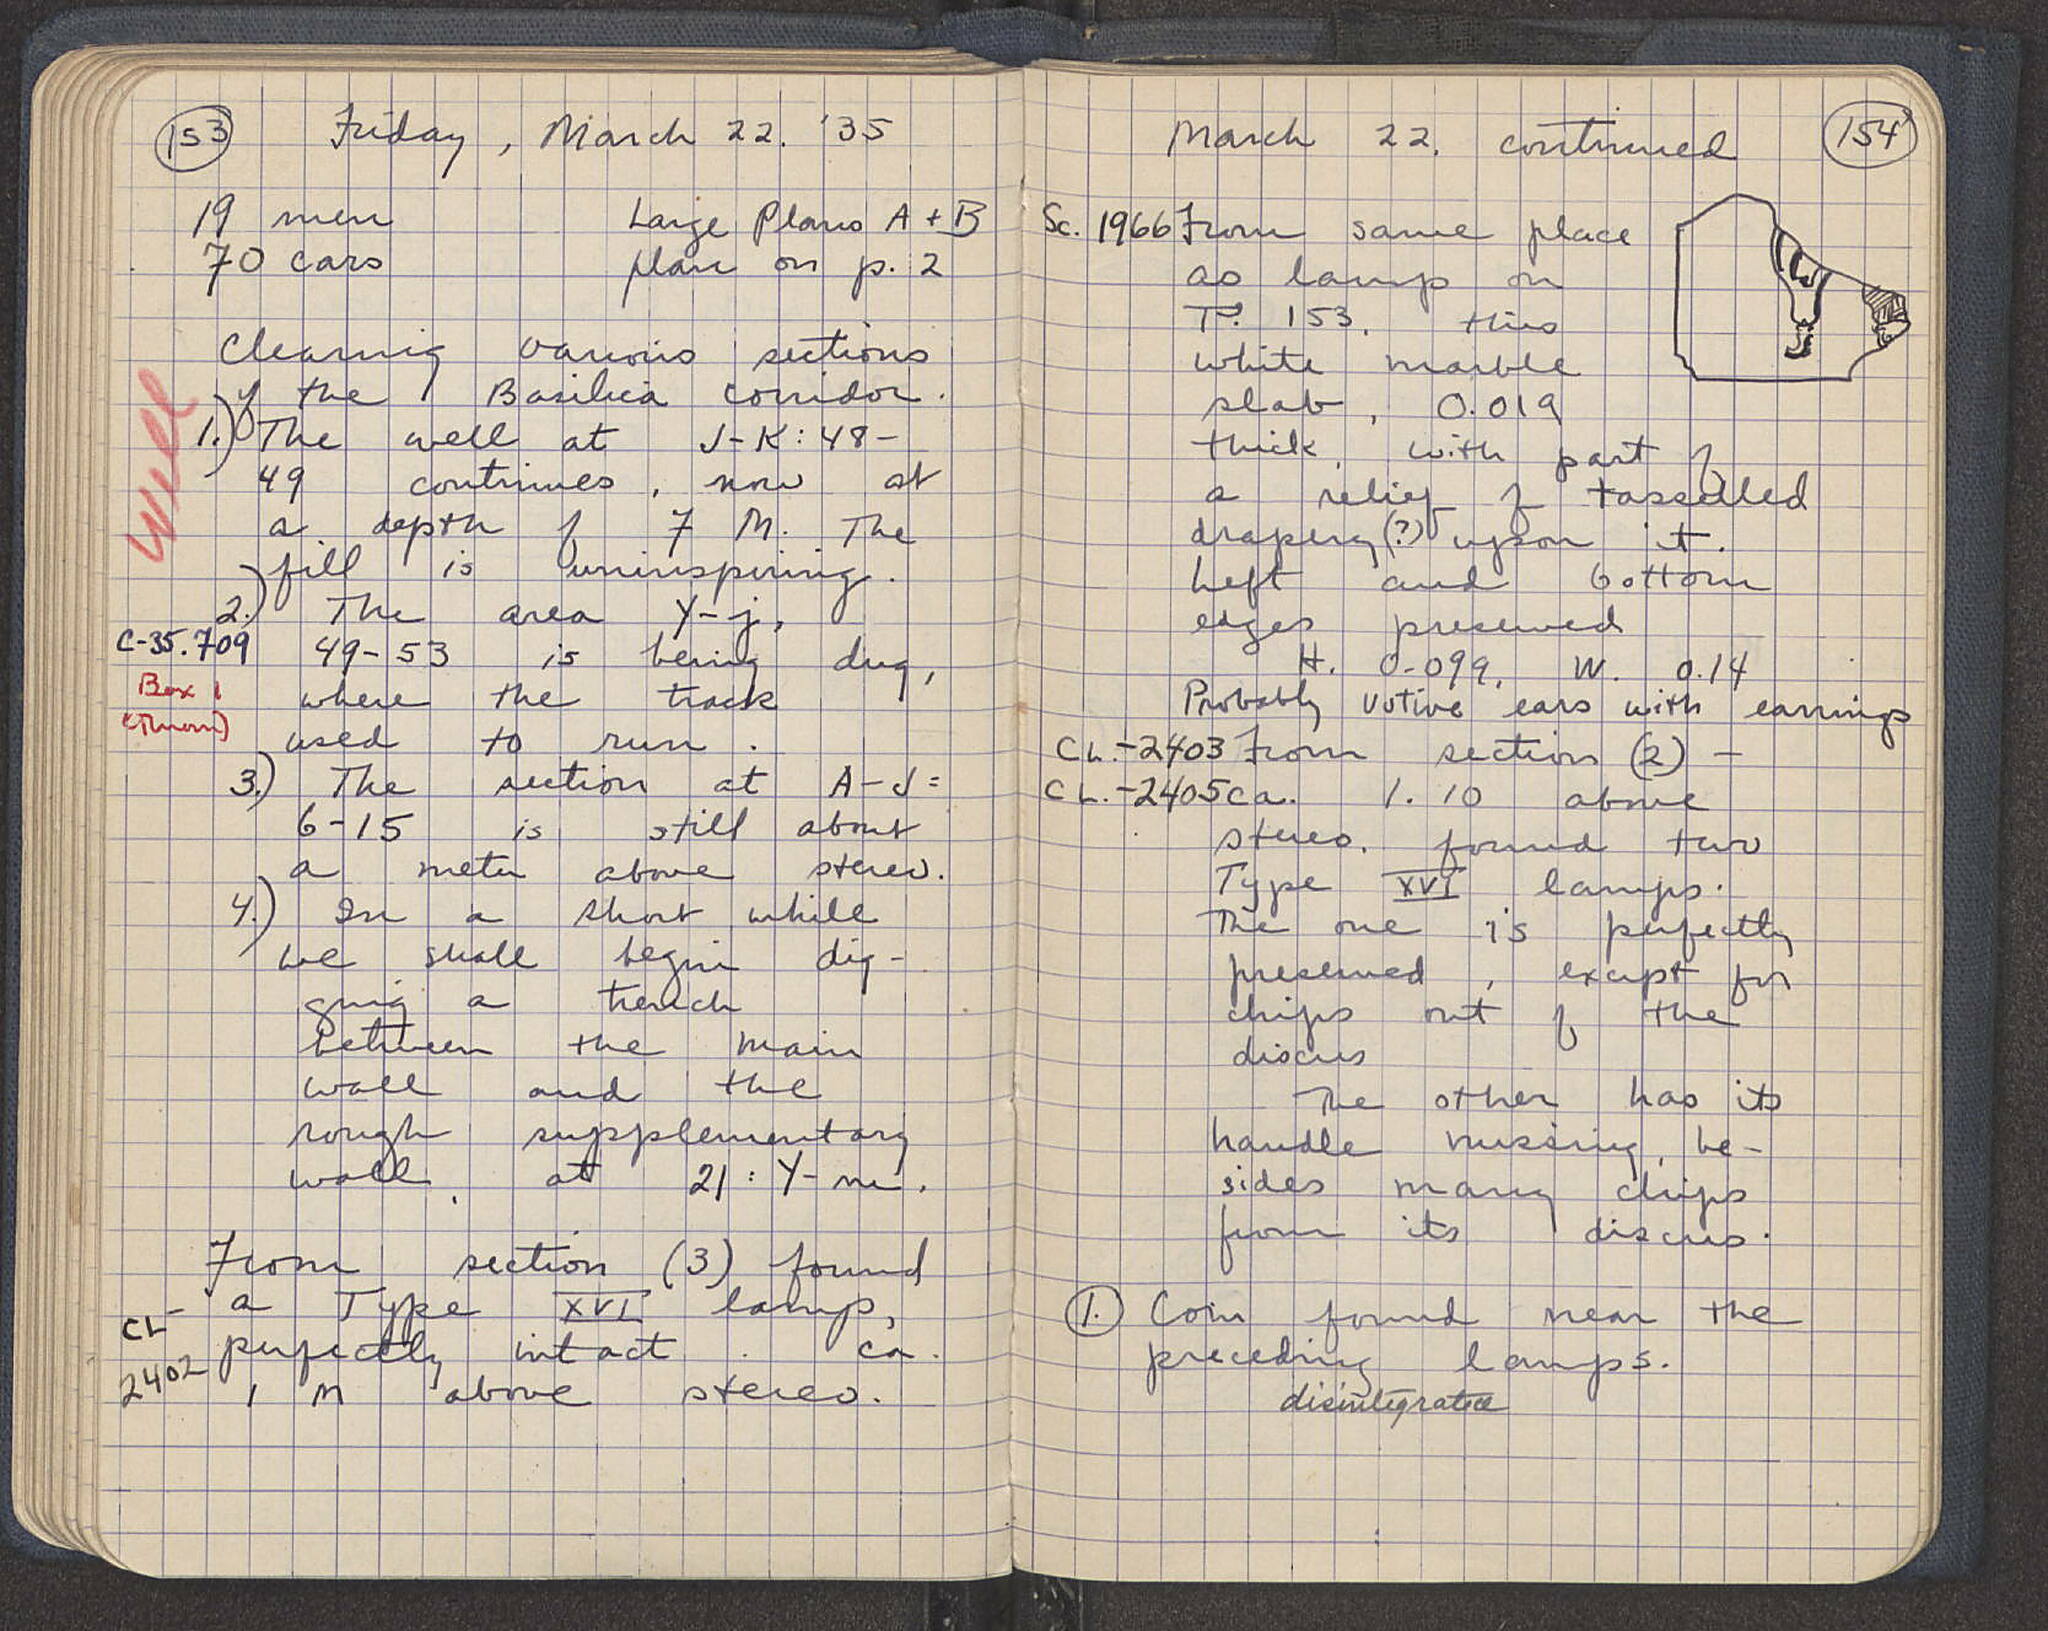 153
Friday, March 22. '35
19 men Large Plans A + B
70 cars plan on p. 2
Clearing various sections
of the Basilica corridor.
Well
1.) The well at J-K:48-
49 continues, now at
a depth of 7 M. The
fill is uninspiring.
2.) The area Y-j,
C-35.709 49-53 is being dug,
Box 1 where the track
used to run.
3.) The section at A-J:
6-15 is still about
a meter above stereo.
4.) In a short while
we shall begin dig-
ging a trench
between the main
wall and the
rough supplementary
wall, at 21:Y-m.
From section (3) found
CL- a Type XVI lamp,
2402 perfectly intact. ca.
1 M above stereo.
March 22. continued 154
Sc. 1966 From same place
as lamp on
P. 153, this
white marble
slab, 0.019
thick, with part of
a relief of tasselled
drapery(?) upon it.
Left and bottom
edges preserved
H. 0.099, W. 0.14
Probably votive ears with earrings
CL.-2403 From section (2) -
CL.-2405 ca. 1.10 above
stereo, found two
Type XVI lamps.
The one is perfectly
preserved, except for
chips out of the
discus
The other has its
handle missing, be-
sides many chips
from its discus.
1. Coin found near the
preceding lamps.
disintegrated